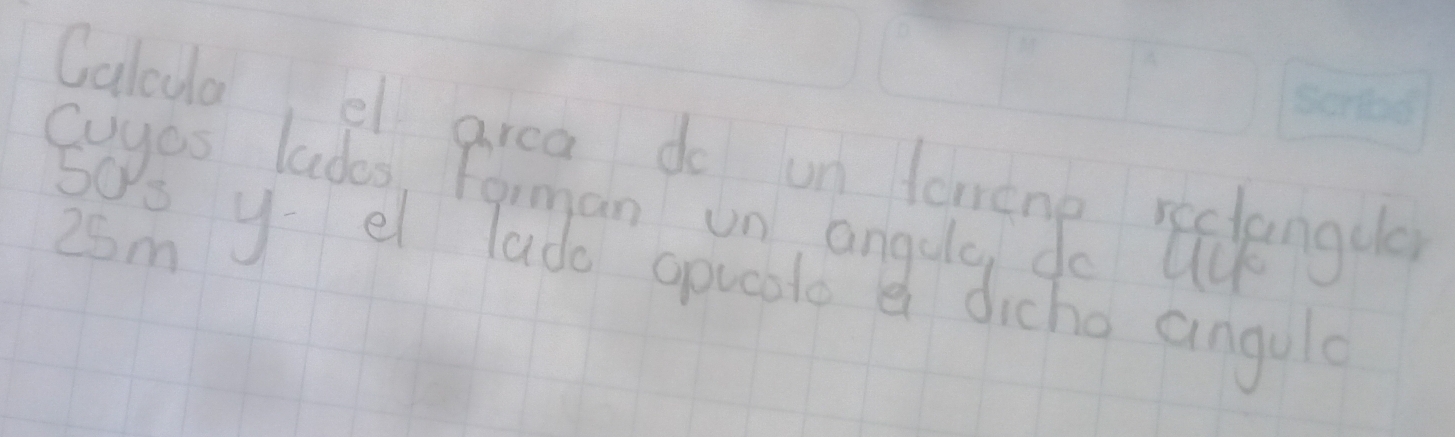 Calcula el area de un terreno rectangular
Cuyos lados, forman un angulo, de
y el lado opuesto a dicho angulo
25m
Scribe